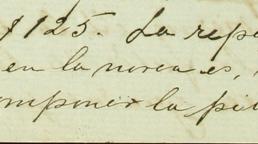 $125. La repa
en la noria es,
omponer la pie